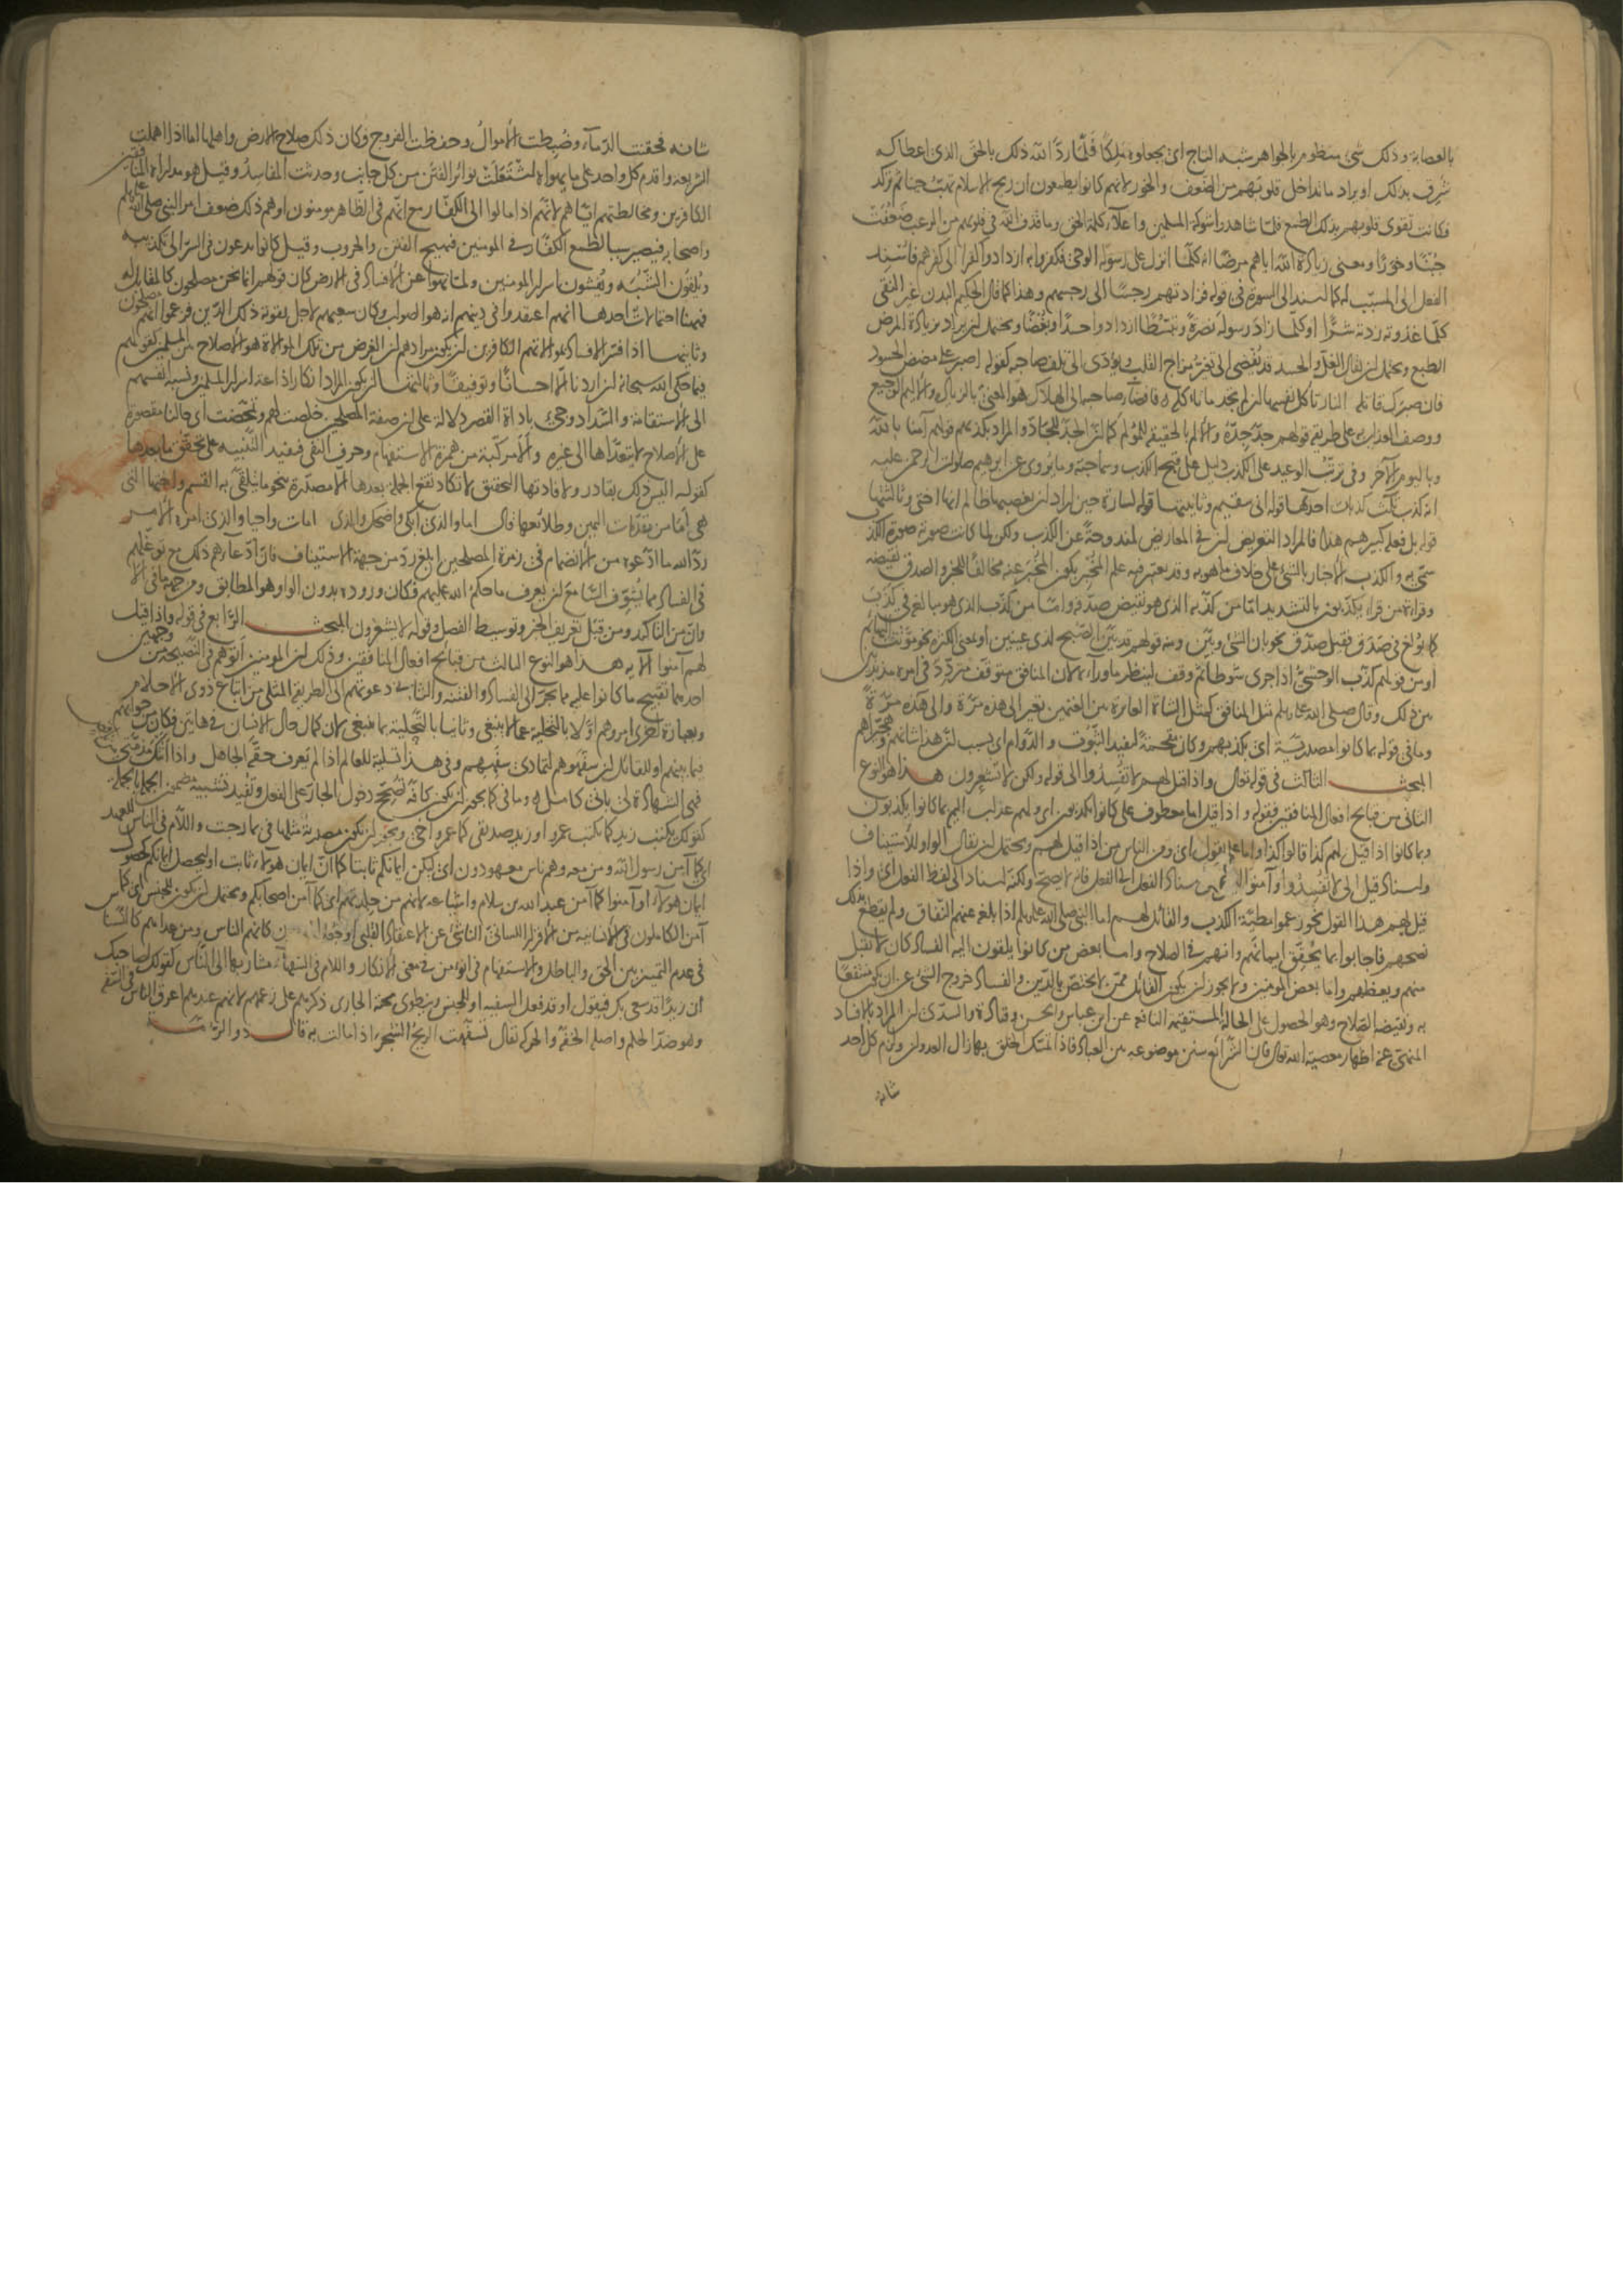 بالعصابة وذلك شئ منظوم بالجواهر شبه التاج اى يجعلوه ملكا فلما ردّ الله ذلك بالحق الذى اعطاكه
شرق بذلك او يراد ما تداخل قلوبهم من الضعف والخور لانهم كانوا يطمعون ان ريح الاسلام تهب حينا ثم تركد
فكانت تقوى قلوبهم بذلك الطمع فلما شاهدوا شوكة المسلمين واعلاء كلمة الحق وما قذف الله فى قلوبهم من الرعب ضعفت
جبنا وخورا ومعنى زيادة الله اياهم مرضا انه كلما انزل على رسوله الوحى فكفروا به ازدادوا كفرا الى كفرهم فاسند
الفعل الى المسبب له كما اسند الى السورة فى قوله فزادتهم رجسا الى رجسهم وهذا كما قال الحكيم البدن غير النقى
كلما غذوته زدته شرّا او كلما زاد رسوله نصرة وتبسّطا ازدادوا حسدا وبغضا ويحتمل ان يراد بزيادة المرض
الطبع ويحتمل ان يقال الغل والحسد قد يفضى الى تغير مزاج القلب ويؤدى الى تلف صاحبه كقوله اصبر على مضض الحسود
فان صبرك قاتله النار تاكل نفسها ان لم تجد ما تاكله صاحبه الى الهلاك هو المعنى بالزيادة والاليم الوجيع
ووصف العذاب به على طريقة قولهم جدّ جدّه والالم بالحقيقة للمؤلم كما ان الجدّ للجادّ والمراد بكذبهم قولهم آمنا بالله
وباليوم الآخر وفى ترتب الوعيد على الكذب دليل على قبح الكذب وسماجته وما يروى عن ابرهيم صلوات الرحمن عليه
انه كذب ثلث كذبات احدها قوله انى سقيم وثانيتها قوله لسارة حين اراد ان يغصبها ظالم انها اختى وثالثتها
قوله بل فعله كبيرهم هذا فالمراد التعريض ان فى المعاريض لمندوحة عن الكذب ولكن لما كانت صورته صورة الكذب
سمّى به والكذب الاخبار بالشئ على خلاف ما هو به وقد يعتبر فيه علم المخبر بكون المخبر عنه مخالفا للخبر والصدق نقيضه
وقراءة من قرأ يكذبون بالتشديد اما من كذّبه الذى هو نقيض صدّقه واما من كذّب الذى هو مبالغ فى كذب
كما بولغ فى صدق فقيل صدّق نحو بان الشئ وبيّن ومنه قولهم قد بيّن الصبح لذى عينين او بمعنى الكثرة نحو موّتت البهائم
او من قولهم كذّب الوحشىّ اذا جرى شوطا ثم وقف لينظر ما وراءه لان المنافق متوقف متردّد فى امره مذبذب
بين ذلك وقال صلى الله عليه وسلم مثل المنافق كمثل الشاة العائرة بين الغنمين تعير الى هذه مرّة والى هذه مرّة
وما فى قوله بما كانوا مصدرية اى بكذبهم وكان مقحمة لتفيد الثبوت والدوام اى بسبب ان هذا شانهم وهجّيراهم
المبحث الثالث فى قوله تعالى واذا قيل لهم لا تفسدوا الى قوله ولكن لا يشعرون هذا هو النوع
الثانى من قبائح افعال المنافقين فقوله واذا قيل اما معطوف على كانوا يكذبون اى ولهم عذاب اليم بما كانوا يكذبون
وبما كانوا اذا قيل لهم كذا قالوا كذا واما على يقول اى ومن الناس من اذا قيل لهم ويحتمل ان يقال الواو للاستيناف
واسناد قيل الى لا تفسدوا وآمنوا اسناد الفعل الى الفعل فانه لا يصح ولكنه اسناد الى لفظ الفعل اى واذا
قيل لهم هذا القول نحو زعموا مطيّة الكذب والقائل لهم اما النبى صلى الله عليه وسلم اذا بلغه عنهم النفاق ولم يقطع بذلك
نصحهم فاجابوا بما يحقق ايمانهم وانهم فى الصلاح واما بعض من كانوا يلقون اليه الفساد كان لا يقبل
منهم ويعظهم واما بعض المؤمنين ولا يجوز ان يكون القائل ممن لا يختص بالدين والفساد خروج الشئ عن ان يكون منتفعا
به ونقيضه الصلاح وهو الحصول على الحالة المستقيمة النافعة عن ابن عباس والحسن وقتادة والسدى ان المراد بالافساد
المنهى عنه اظهار معصية الله تعالى فان الشرائع سنن موضوعة بين العباد فاذا تمسك الخلق بها زال العدوان ولزم كل احد
شانه
شانه فحقنت الدماء وضبطت الاموال وحفظت الفروج وكان ذلك صلاح الارض واهلها اما اذا اهملت
الشريعة واقدم كل واحد على ما يهواه اشتعلت نوائر الفتن من كل جانب وحدثت المفاسد وقيل هو مداراة المنافقين
الكافرين ومخالطتهم اياهم لانهم اذا مالوا الى الكفار مع انهم فى الظاهر مومنون اوهم ذلك ضعف امر النبى صلى الله عليه وسلم
واصحابه فيصير سببا لطمع الكفار فى المومنين فيهيج الفتن والحروب وقيل كانوا يدعون فى السرّ الى تكذيبه
ويلقون الشبه ويفشون اسرار المومنين ولما نهوا عن الافساد فى الارض كان قولهم انما نحن مصلحون كالمقابل له
فههنا احتمالات احدها انهم اعتقدوا فى دينهم انه هو الصواب وكان سعيهم لاجل تقوية ذلك الدين فزعموا انهم مصلحون
وثانيها اذا فسّر الافساد بموالاتهم الكافرين ان يكون مرادهم ان الغرض من تلك الموالاة هو الاصلاح بين المسلمين كقولهم
فيما حكى الله سبحانه ان اردنا الا احسانا وتوفيقا وثالثها ان يكون المراد انكار اذاعة اسرار المسلمين ونسبة انفسهم
الى الاستقامة والسداد وجئ باداة القصر دلالة على ان صفة المصلحين خلصت لهم وتمحّضت اى حالنا مقصورة
على الاصلاح لا يتعداها الى غيره والا مركبة من همزة الاستفهام وحرف النفى فيفيد التنبيه على تحقق ما بعدها
كقوله اليس ذلك بقادر ولافادتها التحقيق لا تكاد تقع الجملة بعدها الا مصدّرة بنحو ما يتلقى به القسم واختها التى
هى اما من مقدمات اليمين وطلائعها قال اما والذى ابكى واضحك والذى امات واحيا والذى امره الامر
ردّ الله ما ادّعوه من الانضمام فى زمرة المصلحين ابلغ ردّ من جهة الاستيناف فان ادّعاءهم ذلك مع توغلهم
فى الفساد مما يشوّق السامع ان يعرف ما حكم الله عليهم فكان وروده بدون الواو هو المطابق ومن جهة ما فى الا
وانّ من التاكيد ومن قبل تعريف الخبر وتوسيط الفصل وقوله لا يشعرون المبحث الرابع فى قوله واذا قيل
لهم آمنوا الآية هذا هو النوع الثالث من قبائح افعال المنافقين وذلك ان المومنين اتوهم فى النصيحة من وجهين
احدهما تقبيح ما كانوا عليه مما يجر الى الفساد والفتنة والثانى دعوتهم الى الطريقة المثلى من اتباع ذوى الاحلام
وبعبارة اخرى امروهم اولا بالتخلية عما لا ينبغى وثانيا بالتحلية بما ينبغى لان كمال حال الانسان فى هاتين فكان من جوابهم
فيما بينهم او للقائل ان سفّهوهم لتمادى سفههم وفى هذا تسلية للعالم اذا لم يعرف حقه الجاهل واذا اتتك مذمتى من ناقص
فهى الشهادة لى بانى كامل وما فى كما يجوز ان يكون كافّة تصحّح دخول الجار على الفعل وتفيد تشبيه مضمون الجملة بالجملة
كقولك يكتب زيد كما يكتب عمرو او زيد صديقى كما عمرو اخى ويجوز ان يكون مصدرية مثلها فى بما رحبت واللام فى الناس للعهد
اى كما آمن رسول الله ومن معه وهم ناس معهودون اى ليكن ايمانكم ثابتا كما ان ايمان هولاء ثابت او ليحصل ايمانكم كحصول
ايمان هولاء او آمنوا كما آمن عبد الله بن سلام واشياعه لانهم من جلدتهم اى كما آمن اصحابكم ويحتمل ان يكون للجنس اى كما
آمن الكاملون فى الانسانية من الاقرار اللسانى الناشئ عن الاعتقاد القلبى او جعل كانهم الناس ومن عداهم كالنسناس
فى عدم التمييز بين الحق والباطل والاستفهام فى انؤمن فى معنى الانكار واللام فى السفهاء مشار بها الى الناس كقولك لصاحبك
ان زيدا قد سعى بك فيقول او قد فعل السفيه او للجنس وينطوى تحته الجارى ذكرهم على زعمهم لانهم عندهم اعرق الناس فى السفه
وهو ضدّ الحلم واصله الخفة والحركة يقال تسفّهت الريح الشجر اذا مالت به قال ذو الرمة